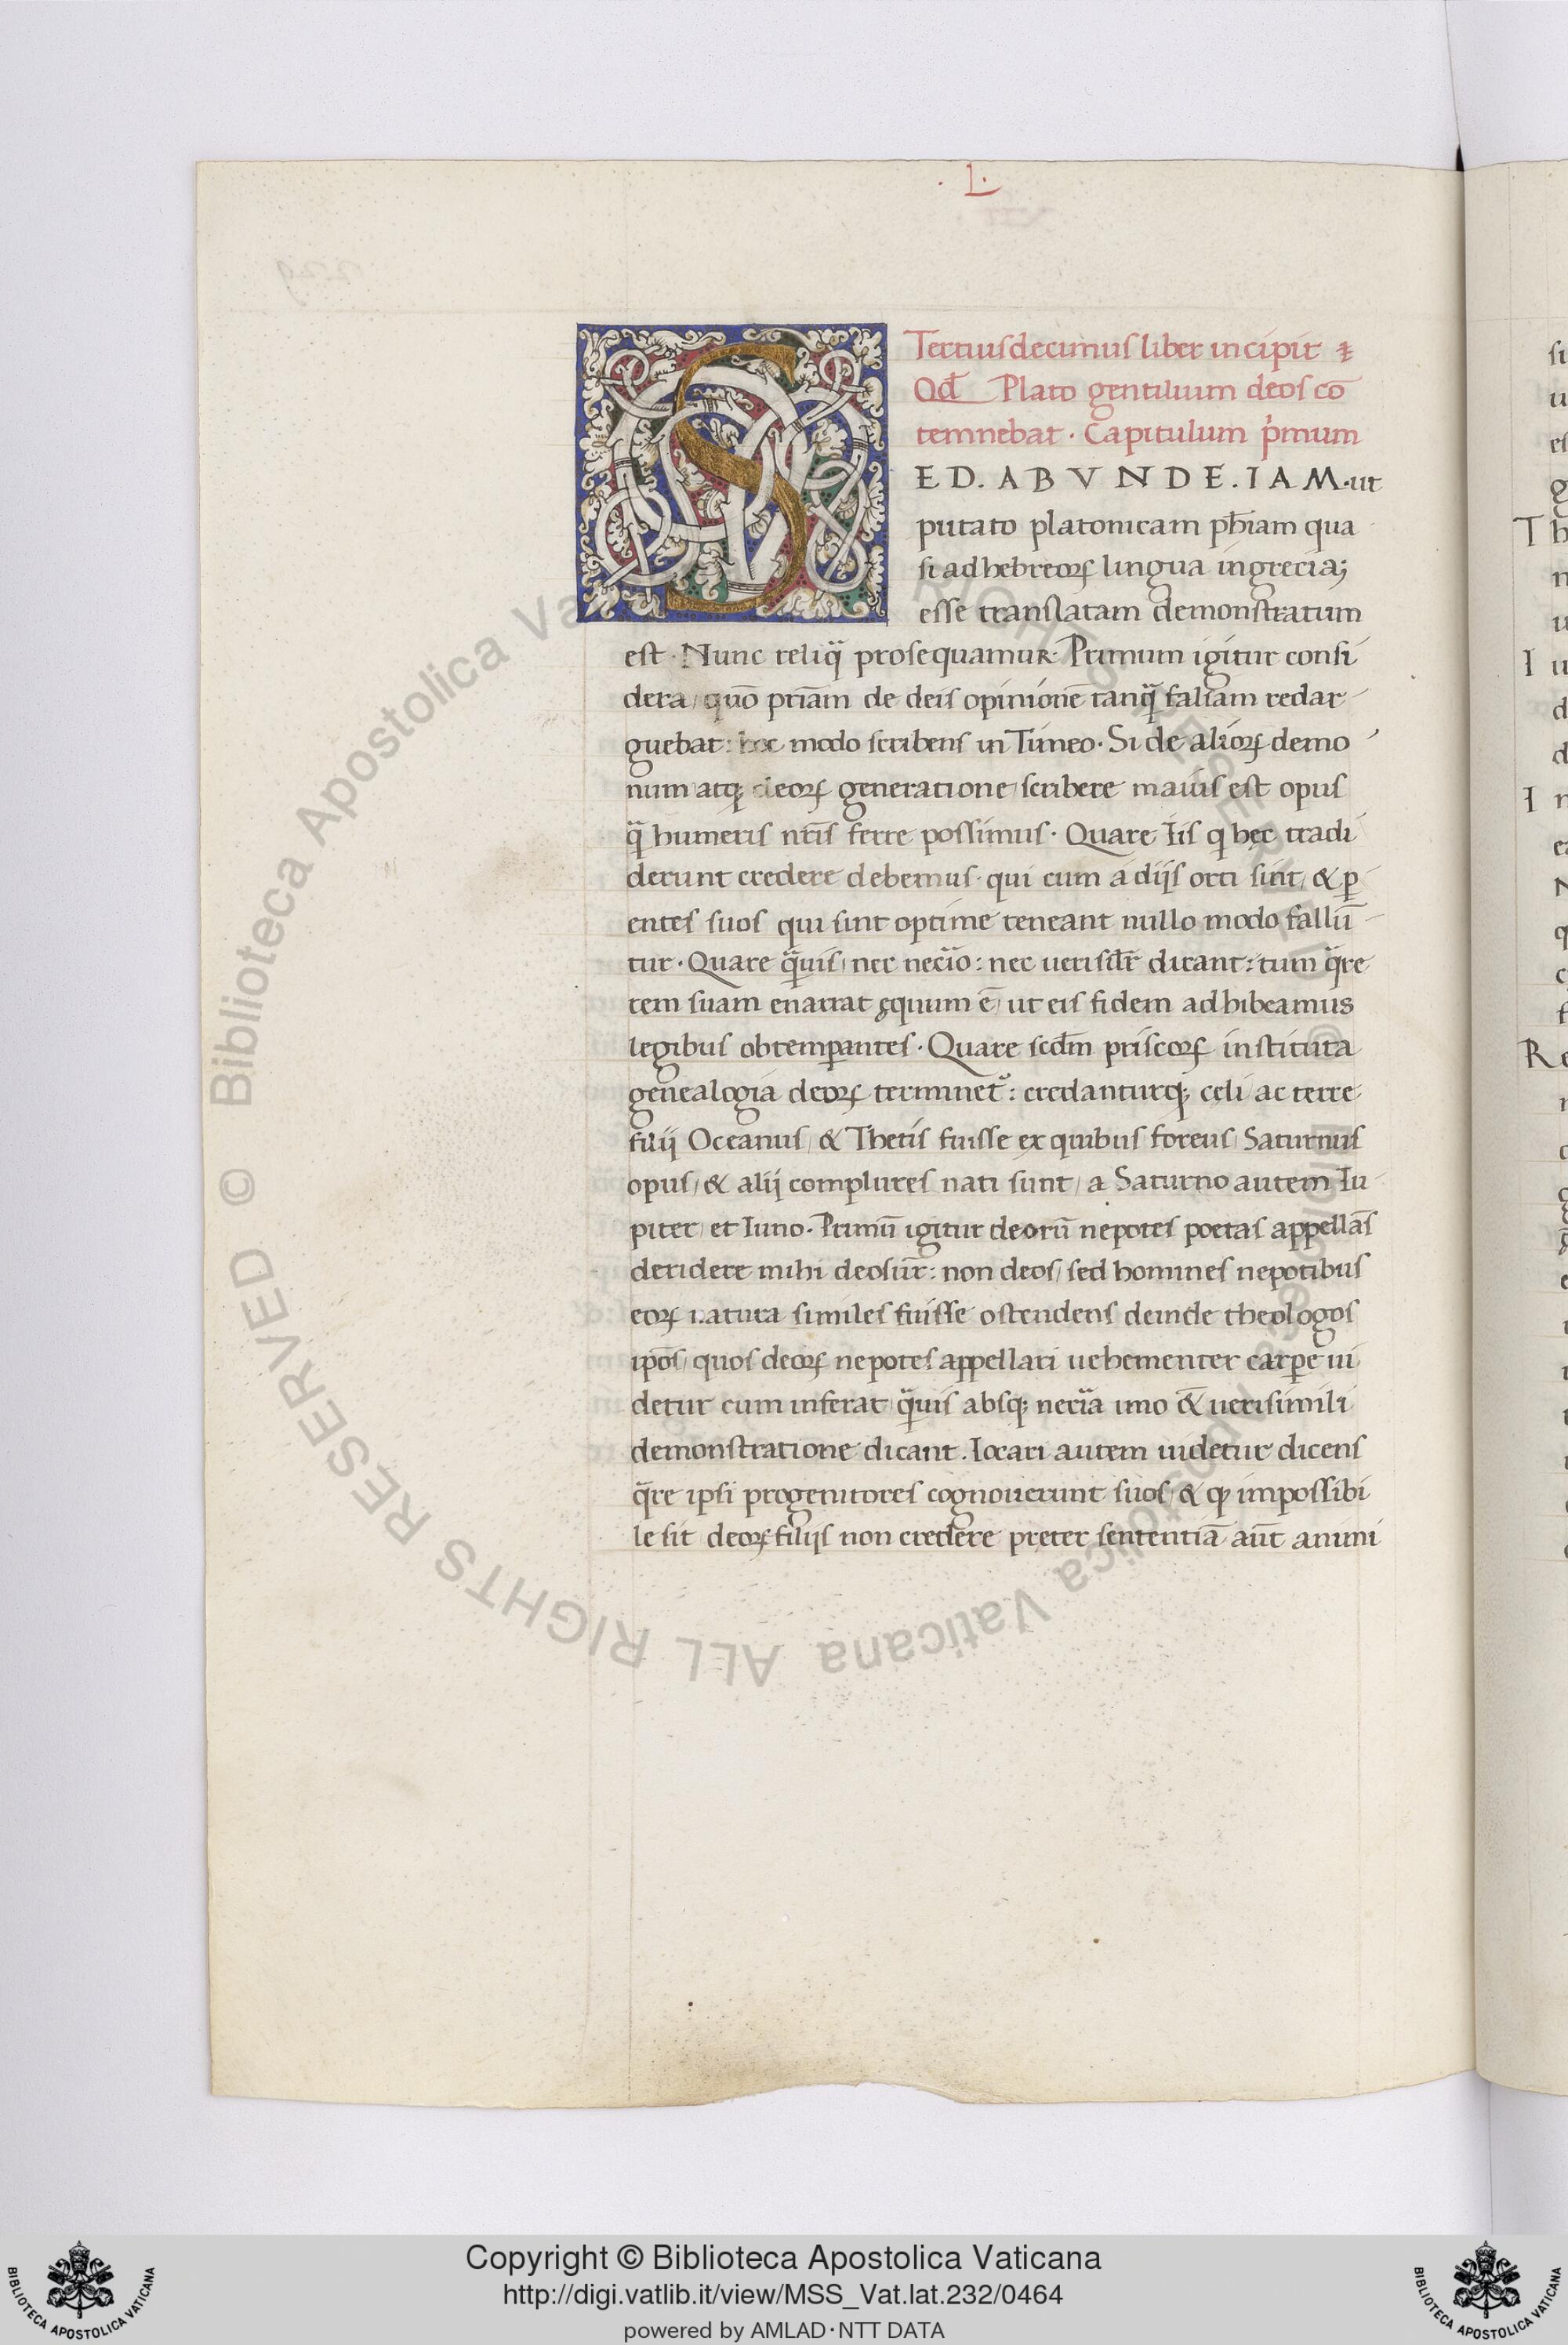 .L.
Tertiusdecimus liber incipit ⁊
Qd̄ Plato gentilium deos cō
temnebat · Capitulum p̍mum
SED. ABVNDE. IAM. ut
putato platonicam phīam qua
si ad hebreoꝝ lingua in greciaꝫ
esse translatam demonstratum
est · Nunc reliq̄ prosequamur. Primum igitur consi
dera / quō priām de deis opinionē tanq̄ falsam redar
guebat: hoc modo scribens in Timeo · Si de alioꝝ demo
num atqꝫ deoꝝ generatione scribere mauis est opus
q̄ humeris nr̄is ferre possimus · Quare Iis q hęc tradi
derunt credere debemus · qui cum a dijs orti sint / & ꝑ
entes suos qui sint optime teneant nullo modo fallūn
tur · Quare q̄uis / nec necīo: nec uerisilr̄ dicant: tum q̄re
rem suam enarrat ęquum ē / ut eis fidem adhibeamus
legibus obtemꝑantes · Quare scdm̄ priscoꝝ instituta
genealogia deoꝝ terminet᷑: credanturqꝫ cęli ac terre
filij Oceanus / & Thetis fuisse ex quibus foreus / Saturnus
opus / & alij complures nati sunt / a Saturno autem Iu
piter / et Iuno · Primū igitur deorū nepotes poetas appellās
deridere mihi deos ur̄: non deos / sed homines nepotibus
eoꝝ natura similes fuisse ostendens deinde theologos
ipōs / quos deoꝝ nepotes appellari uehementer carꝑe ui
detur cum inferat q̄uis absqꝫ necīa imo & uerisimili
demonstratione dicant . Iocari autem uidetur dicens
q̄re ipsi progenitores cognouerunt suos / & ꝙ impossibi
le sit deoꝝ filijs non credere pręter sententiā aūt animi
Copyright © Biblioteca Apostolica Vaticana
http://digi.vatlib.it/view/MSS_Vat.lat.232/0464
powered by AMLAD·NTT DATA
BIBLIOTECA APOSTOLICA VATICANA
BIBLIOTECA APOSTOLICA VATICANA
© Biblioteca Apostolica Vaticana ALL RIGHTS RESERVED